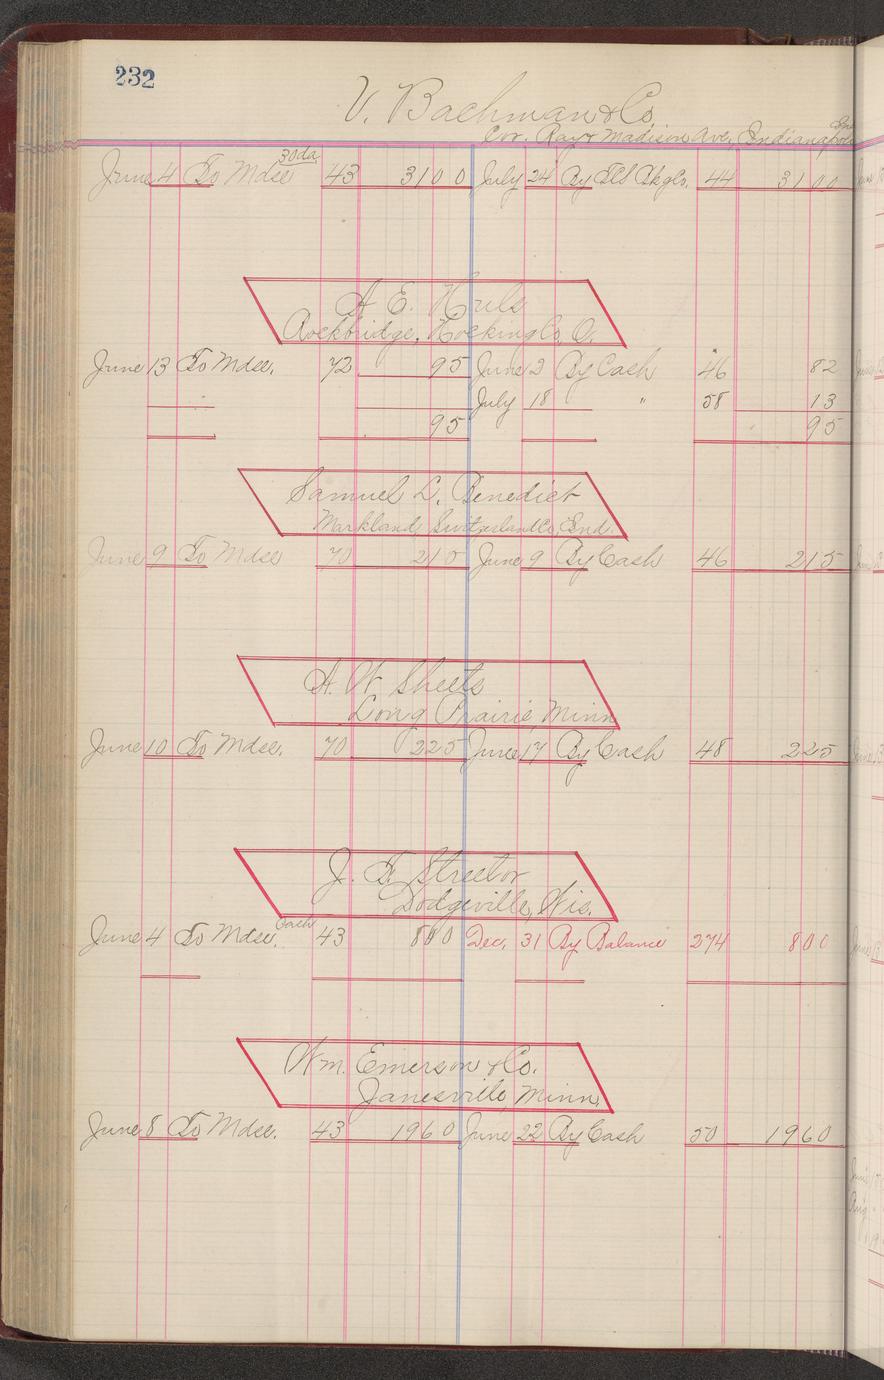 232
V. Bachman & Co.
Cor. Ray & Madison Ave, Indianapolis Ind
30 da
June 4 To Mdse 43 31 00 July 24 By Bkg Co. 44 31 00
A. E.
Rockbridge, Hocking Co. O.
June 13 To Mdse. 72 95 June 2 By Cash 46 82
July 18 " 58 13
95 95
Samuel L. Benedict
Markland, Switzerland Co, Ind.
June 9 To Mdse 70 2 15 June 9 By Cash 46 2 15
A. W. Sheets
Long Prairie, Minn
June 10 To Mdse. 70 2 25 June 17 By Cash 48 2 25
J. T. Streetor
Dodgeville, Wis.
June 4 To Mdse. Cash 43 8 00 Dec. 31 By Balance 274 8 00
Wm. Emerson & Co.
Janesville, Minn.
June 8 To Mdse. 43 19 60 June 22 By Cash 50 19 60